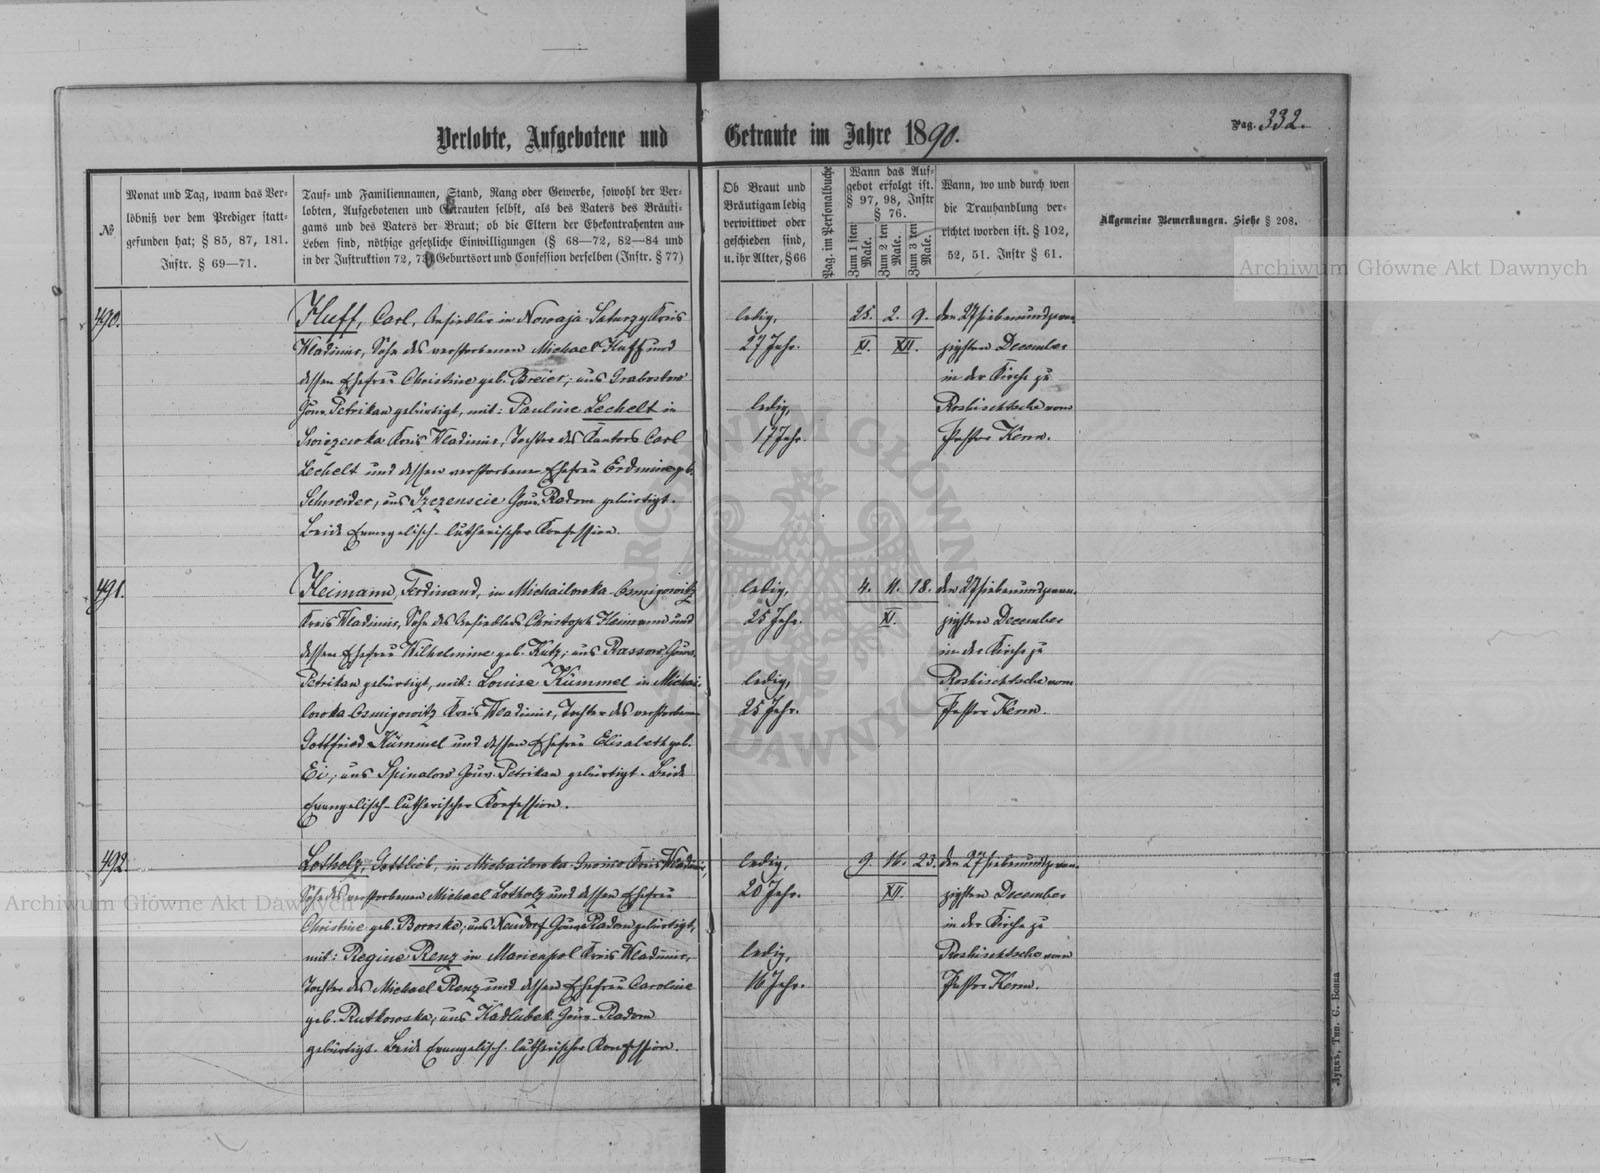 Verlobte, Aufgebotene und Getraute im Jahre 1890.
Pag. 332.
№
Monat und Tag, wann das Ver-
löbniß vor dem Prediger statt-
gefunden hat; § 85, 87, 181.
Instr. § 69—71.
Tauf- und Familiennamen, Stand, Rang oder Gewerbe, sowohl der Ver-
lobten, Aufgebotenen und Getrauten selbst, als des Vaters des Bräuti-
gams und des Vaters der Braut; ob die Eltern der Ehekontrahenten am
Leben sind, nöthige gesetzliche Einwilligungen (§ 68—72, 82—84 und
in der Instruktion 72, 73) Geburtsort und Confession derselben (Instr. § 77)
Ob Braut und
Bräutigam ledig
verwittwet oder
geschieden sind,
u. ihr Alter, § 66
Pag. im Personalbuche
Wann das Auf-
gebot erfolgt ist.
§ 97, 98, Instr
§ 76.
Zum 1 sten Male.
Zum 2 ten Male.
Zum 3 ten Male.
Wann, wo und durch wen
die Trauhandlung ver-
richtet worden ist. § 102,
52, 51. Instr § 61.
Allgemeine Bemerkungen. Siehe § 208.
490.
Huff, Carl, Ansiedler in Nowaja Saturzy Kreis
Wladimir, Sohn des verstorbenen Michael Huff und
dessen Ehefrau Christine geb. Breier; aus Grabostow
Gouv. Petrikau gebürtigt, mit: Pauline Lechelt in
Kreis Wladimir, Tochter des Kantors Carl
Lechelt und dessen verstorbenen Ehefrau Erdmine geb.
Schneider, aus Gouv. Radom gebürtigt.
Beide Evangelisch-lutherischer Konfession.
ledig,
27 Jahr.
ledig,
17 Jahr.
25. 2. 9.
XI. XII.
den 27 siebenundzwan-
zigsten December
in der Kirche zu
Roshischtsche vom
Pastor Kerm.
491.
Heimann, Ferdinand, in Michailowka-Osmigowitz
Kreis Wladimir, Sohn des Ansiedlers Christoph Heimann und
dessen Ehefrau Wilhelmine geb. Kutz; aus Rassow Gouv.
Petrikau gebürtigt, mit: Louise Kümmel in Michai-
lowka Osmigowitz Kreis Wladimir, Tochter des verstorbenen
Gottfried Kümmel und dessen Ehefrau Elisabeth geb.
Ei, aus Spinalow Gouv. Petrikau gebürtigt. Beide
Evangelisch-lutherischer Konfession.
ledig,
25 Jahr.
ledig,
25 Jahr.
4. 11. 18.
XI.
den 27 siebenundzwan-
zigsten December
in der Kirche zu
Roshischtsche vom
Pastor Kerm.
492.
Lotholz, Gottlieb, in Michailowka Kreis Wladimir,
Sohn des verstorbenen Michael Lotholz und dessen Ehefrau
Christine geb. Boroske; aus Neudorf Gouv. Radom gebürtigt,
mit: Regine Renz in Marienpol Kreis Wladimir,
Tochter des Michael Renz und dessen Ehefrau Caroline
geb. Rutkowska, aus Kadlubek Gouv. Radom
gebürtigt. Beide Evangelisch-lutherischer Konfession.
ledig,
20 Jahr.
ledig,
16 Jahr.
9. 16. 23.
XII.
den 27 siebenundzwan-
zigsten December
in der Kirche zu
Roshischtsche vom
Pastor Kerm.
Луцкъ, Тип. С. Бокка
Archiwum Główne Akt Dawnych
Archiwum Główne Akt Dawnych
ARCHIWUM GŁÓWNE
AKT DAWNYCH